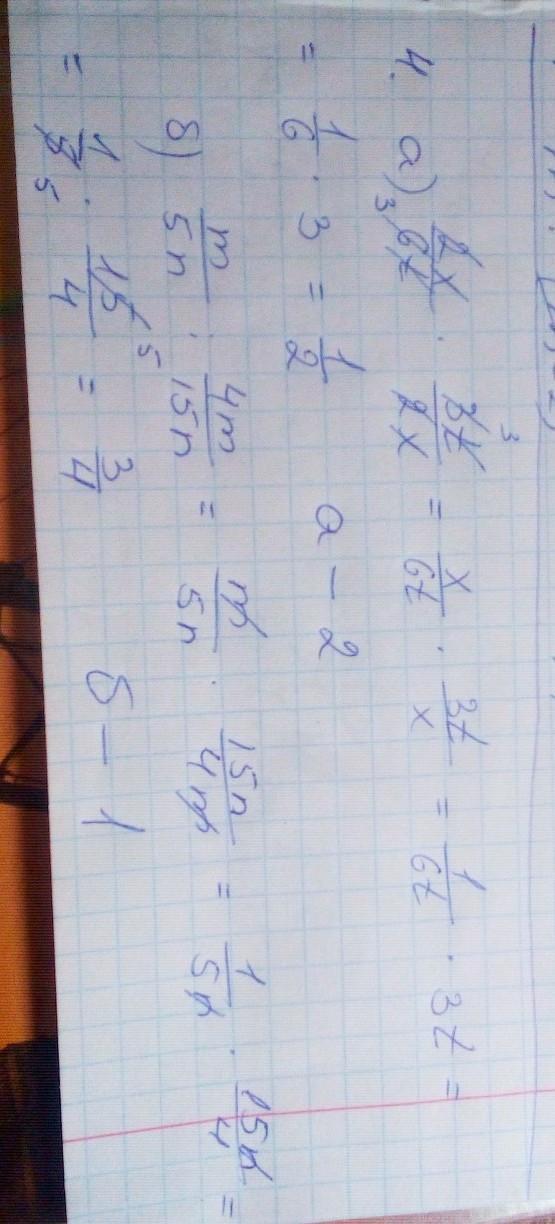 4. а) 2x/6z · 3z/2x = x/6z · 3z/x = 1/6z · 3z =
= 1/6 · 3 = 1/2 а – 2
б) m/5n : 4m/15n = m/5n · 15n/4m = 1/5n · 15n/4 =
= 1/5 · 15/4 = 3/4 б – 1